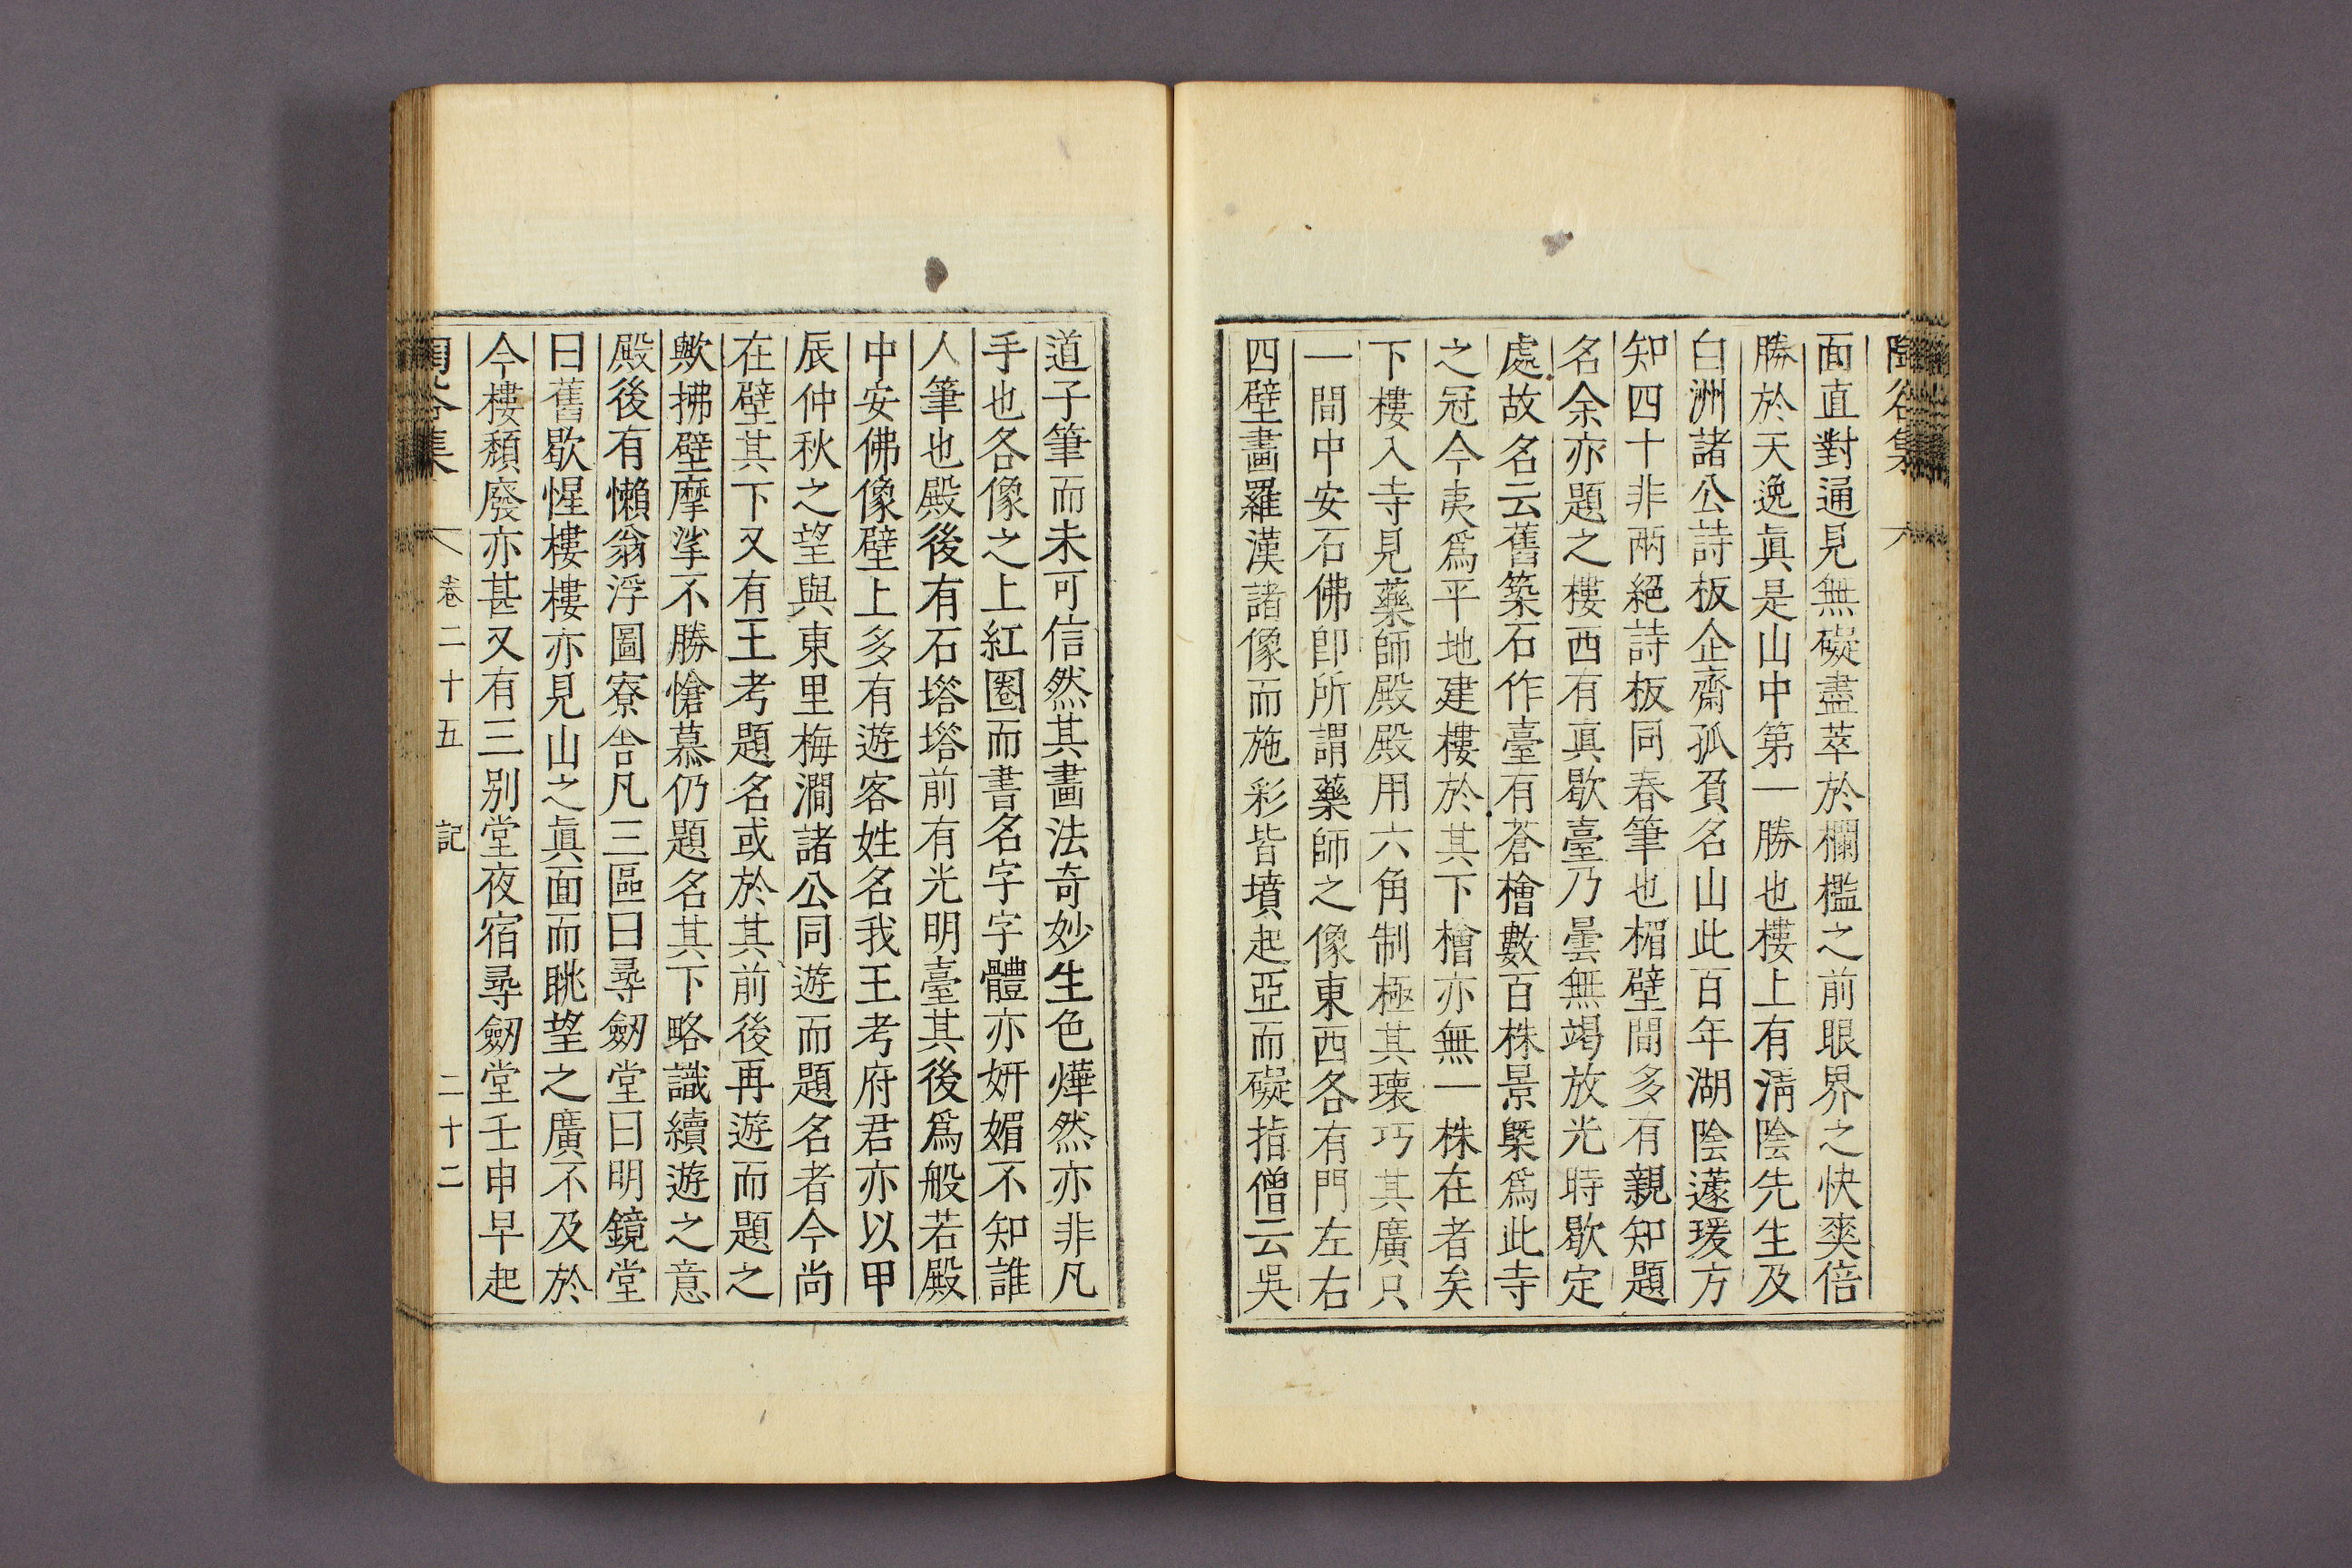 陶谷集
面直對通見無礙盡萃於欄檻之前眼界之快爽倍
勝於天逸眞是山中第一勝也樓上有淸陰先生及
白洲諸公詩板企齋孤負名山此百年湖陰蘧瑗方
知四十非兩絕詩板同春筆也楣壁間多有親知題
名余亦題之樓西有眞歇臺乃曇無竭放光時歇定
處故名云舊築石作臺有蒼檜數百株景槩爲此寺
之冠今夷爲平地建樓於其下檜亦無一株在者矣
下樓入寺見藥師殿殿用六角制極其瓌巧其廣只
一間中安石佛卽所謂藥師之像東西各有門左右
四壁畫羅漢諸像而施彩皆墳起亞而礙指僧云吳
道子筆而未可信然其畫法奇妙生色燁然亦非凡
手也各像之上紅圈而書名字字體亦姸媚不知誰
人筆也殿後有石塔塔前有光明臺其後爲般若殿
中安佛像壁上多有遊客姓名我王考府君亦以甲
辰仲秋之望與東里梅澗諸公同遊而題名者今尙
在壁其下又有王考題名或於其前後再遊而題之
歟拂壁摩挲不勝愴慕仍題名其下略識續遊之意
殿後有懶翁浮圖寮舍凡三區曰尋劒堂曰明鏡堂
曰舊歇惺樓樓亦見山之眞面而眺望之廣不及於
今樓頹廢亦甚又有三別堂夜宿尋劒堂壬申早起
陶谷集 卷二十五 記 二十二